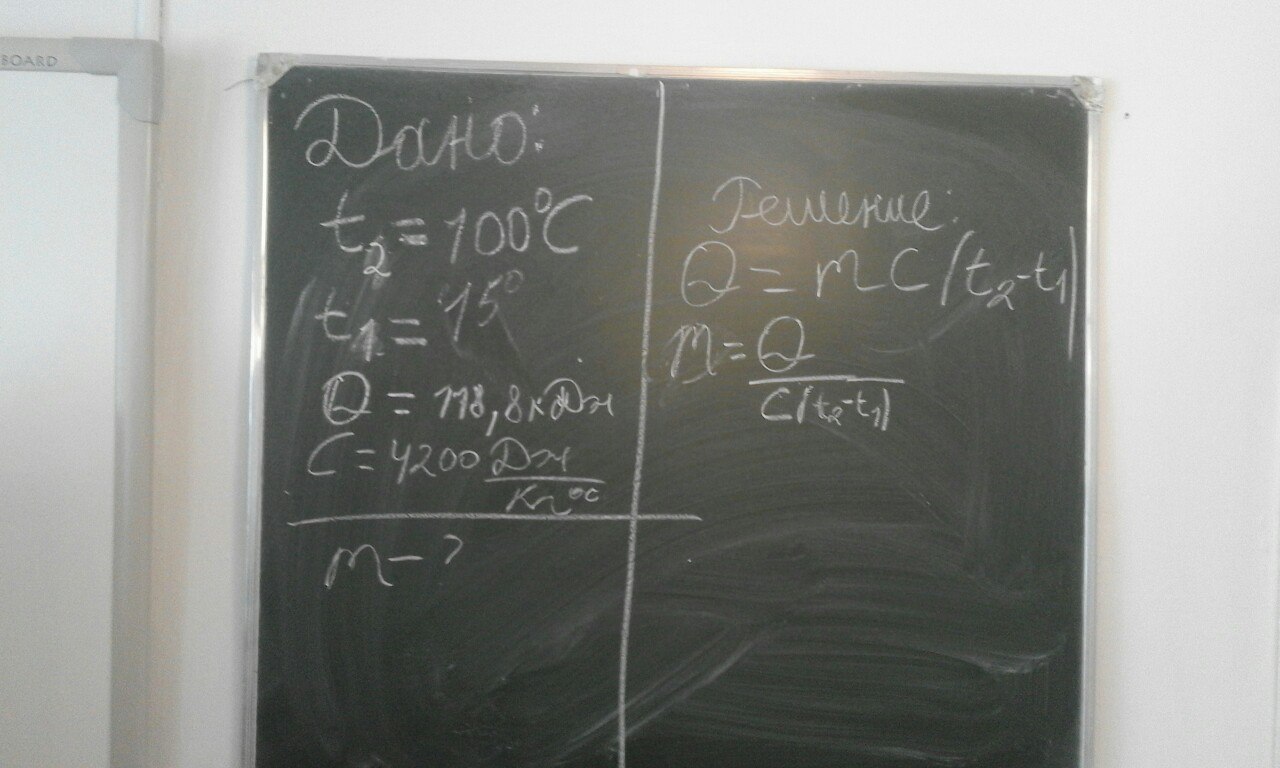 BOARD
Дано:
t₂ = 100°C
t₁ = 15°
Q = 118,8 кДж
C = 4200 Дж
кг °C
m - ?
Решение:
Q = mC(t₂-t₁)
m = Q
C(t₂-t₁)